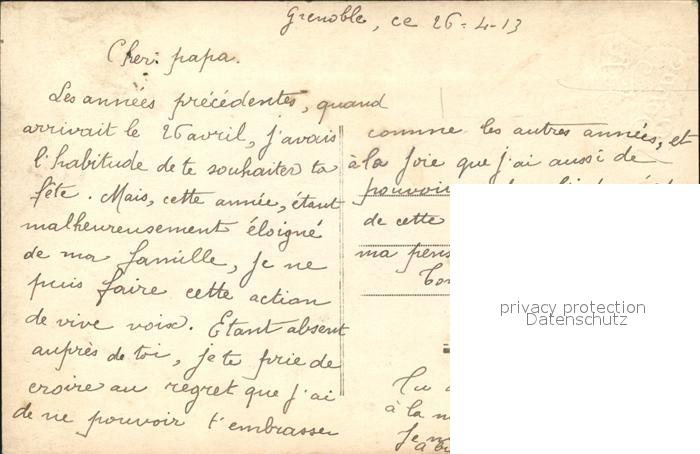 Grenoble, ce 26-4-13
Cher papa.
Les années précédentes, quand
arrivait le 26 avril, j'avais
l'habitude de te souhaiter ta
fête. Mais, cette année, étant
malheureusement éloigné
de ma famille, je ne
puis faire cette action
de vive voix. Etant absent
auprès de toi, je te prie de
croire au regret que j'ai
de ne pouvoir t'embrasser
comme les autres années, et
à la joie que j'ai aussi de
pouvoir
de cette
ma
Tu
à la
Je
privacy protection
Datenschutz